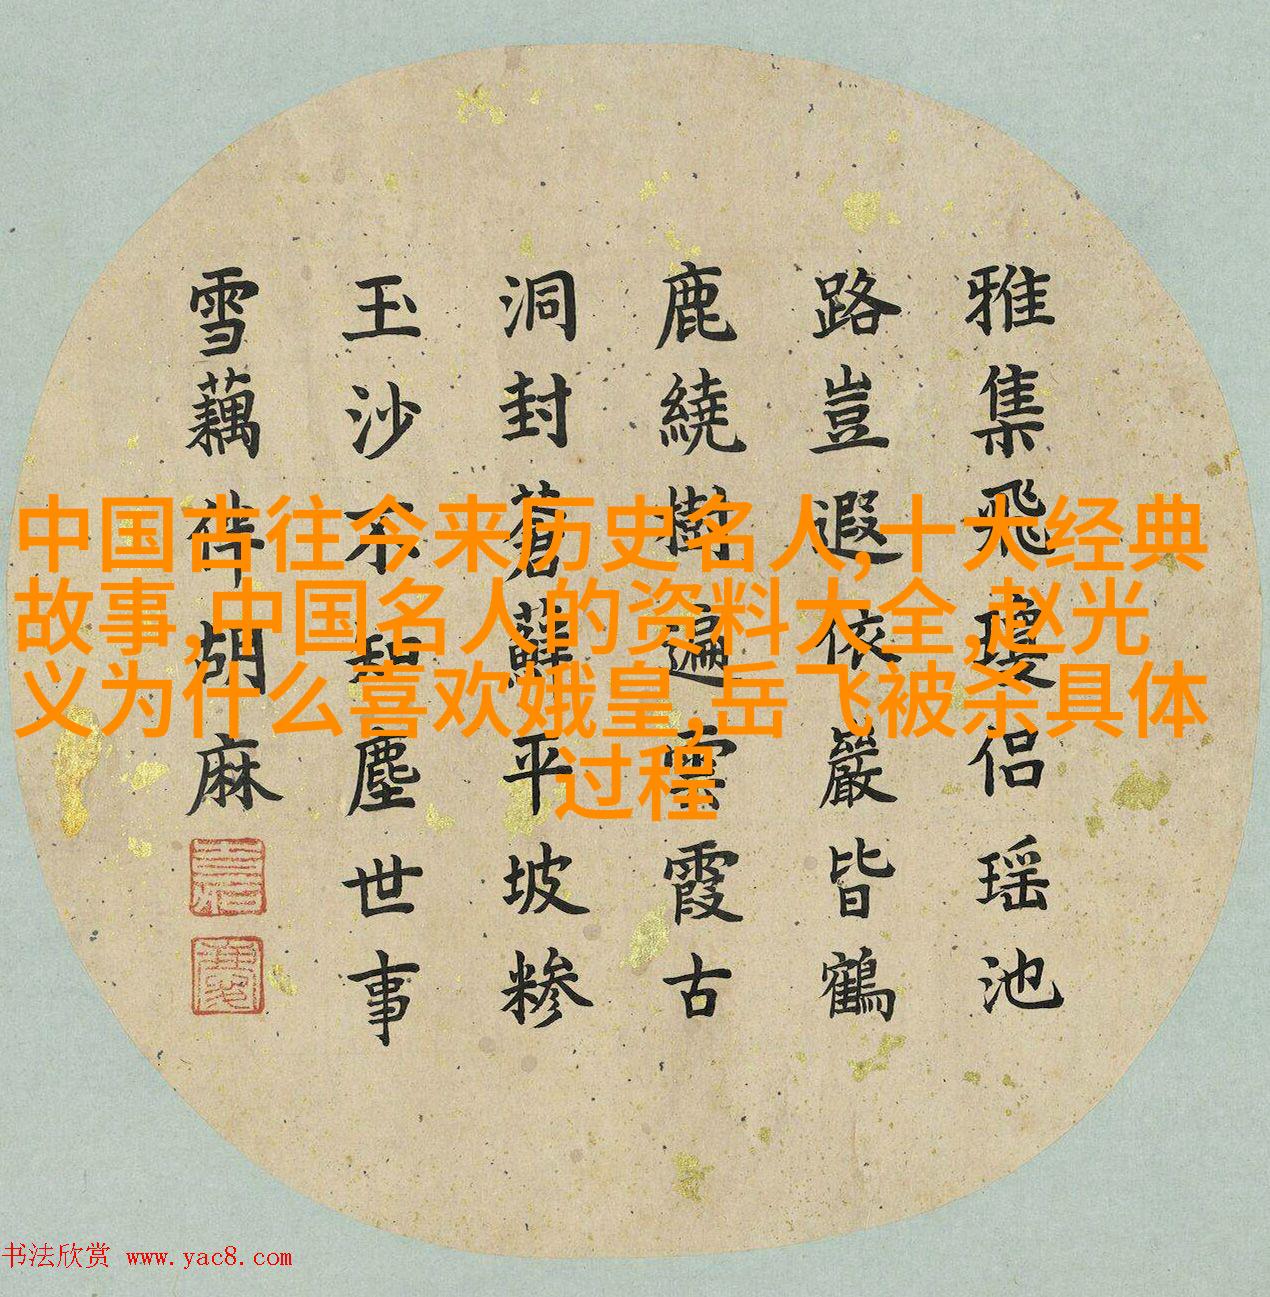 中国古往今来历史名人,十大经典
故事,中国名人的资料大全,赵光
义为什么喜欢娥皇,岳飞被杀具体
过程
雅集飛瓊侶瑶池
路豈遐依巖皆鶴
鹿繞樹遍雲霞古
洞封蒼蘚平坡糝
玉沙不知塵世事
雪藕伴胡麻
书法欣赏 www.yac8.com